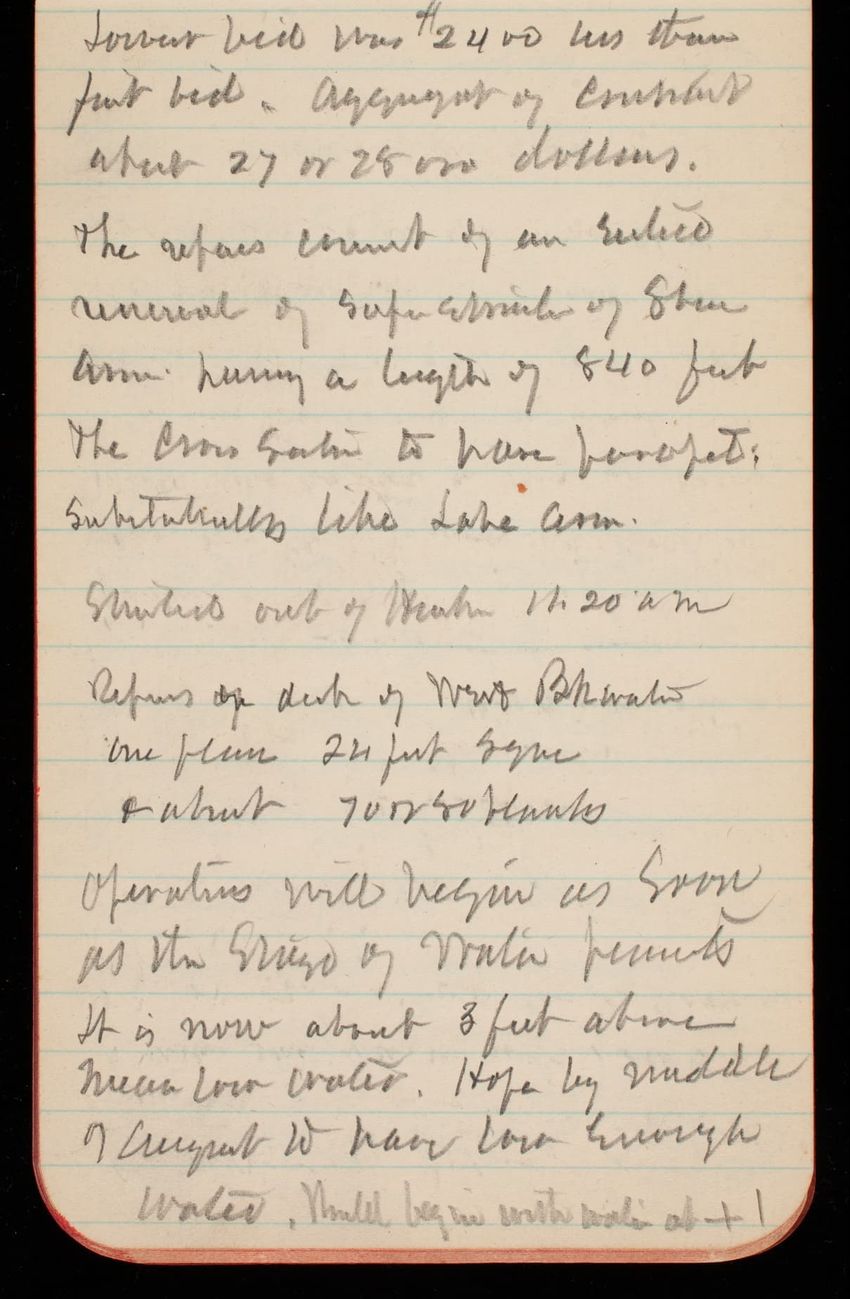 Lowest bid was $2400 less than
first bid. Aggregate of Contract
about 27 or 28000 dollars.
The repairs consist of an Entire
renewal of Superstructure of Shore
Arm. having a length of 840 feet
The Cross Section to have parapet:
Substantially like Lake Arm.
Started out of Harbor 11.20 am
Repairs op deck of West Bkwater
one place 24 feet Sqre
& about 70 or 80 planks
Operations will begin as Soon
as the Stage of Water permits
It is now about 3 feet above
Mean low water. Hope by middle
of August to have low Enough
water. Would begin with water at + 1